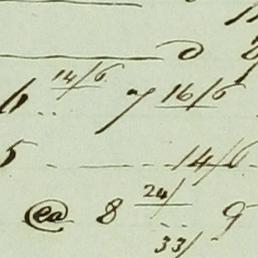 6 .. 14/6 7 16/6
5 - - - - - 14/6
@ea 8 24/ 9
33/